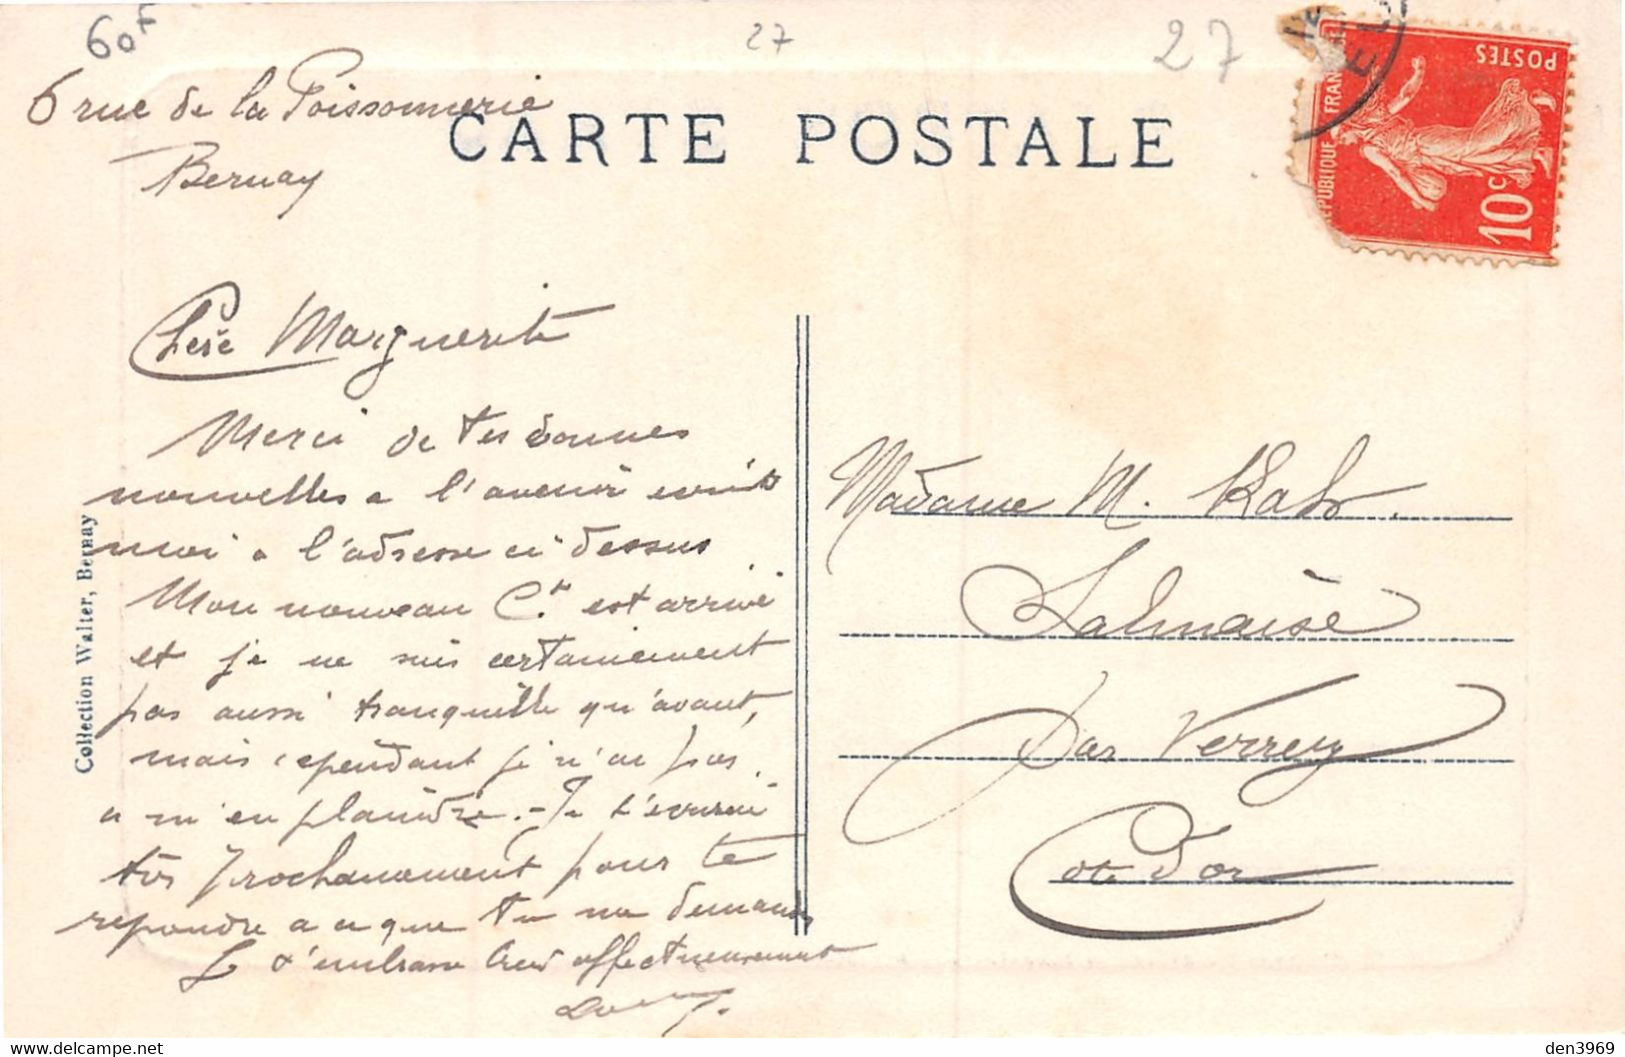 60F
27
27
6 rue de la Poissonnerie
Bernay
CARTE POSTALE
POSTES
RÉPUBLIQUE FRAN
10c
Chère Marguerite
Merci de tes bonnes
nouvelles a l'avenir écrit
moi a l'adresse ci dessus
Mon nouveau C. est arrivé
et je ne suis certainement
pas aussi tranquille qu'avant,
mais cependant je n'ai pas
a m'en plaindre. - Je t'écrirai
très prochainement pour te
repondre a ce que tu me demandes
Je t'embrasse bien affectueusement
Collection Walter, Bernay
Madame M.
Lalmaise
par Verrey
Cote D'or
den3969